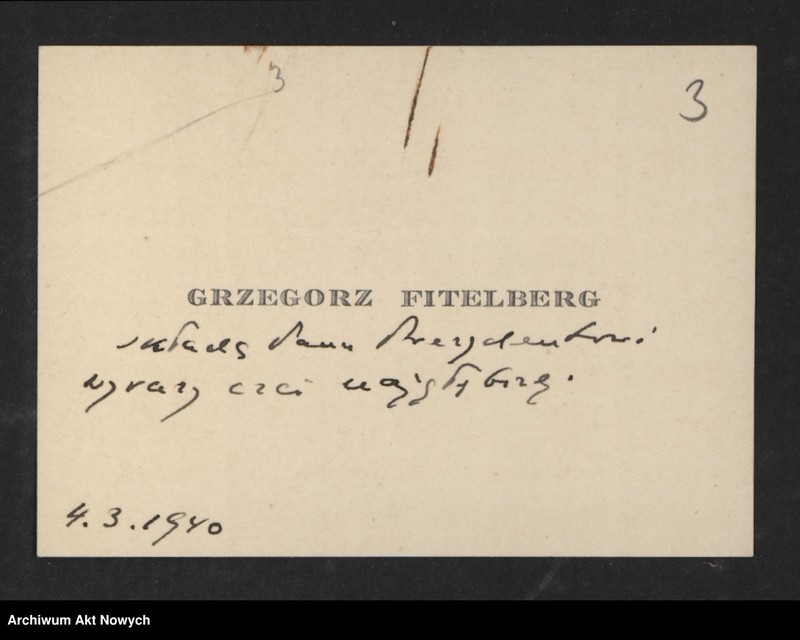 3
3
GRZEGORZ FITELBERG
składa Panu Prezydentowi
wyrazy czci najgłębszej.
4.3.1940
Archiwum Akt Nowych